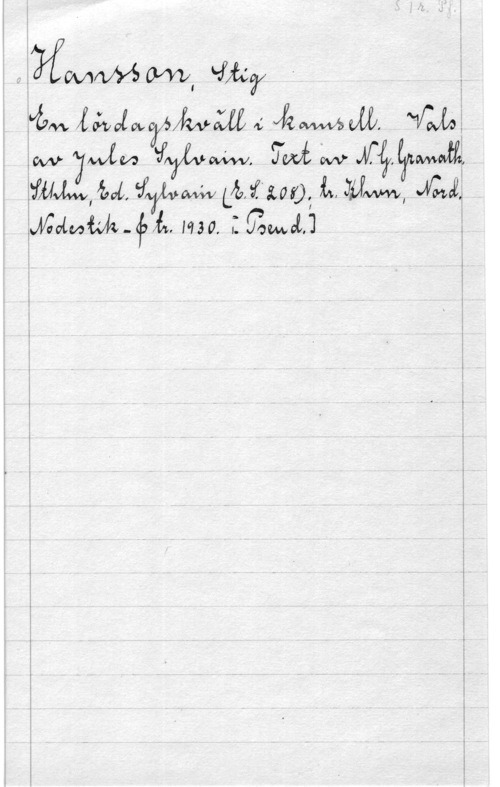 Hansson, Stig
En lördagskväll i kamsell. Vals
av Jules Sylvain. Text av N.G. Granath.
Sthlm, Ed. Sylvain (E.S. 208); tr. Khvn, Nord.
Nodestik- & tr. 1930. [: Pseud.]